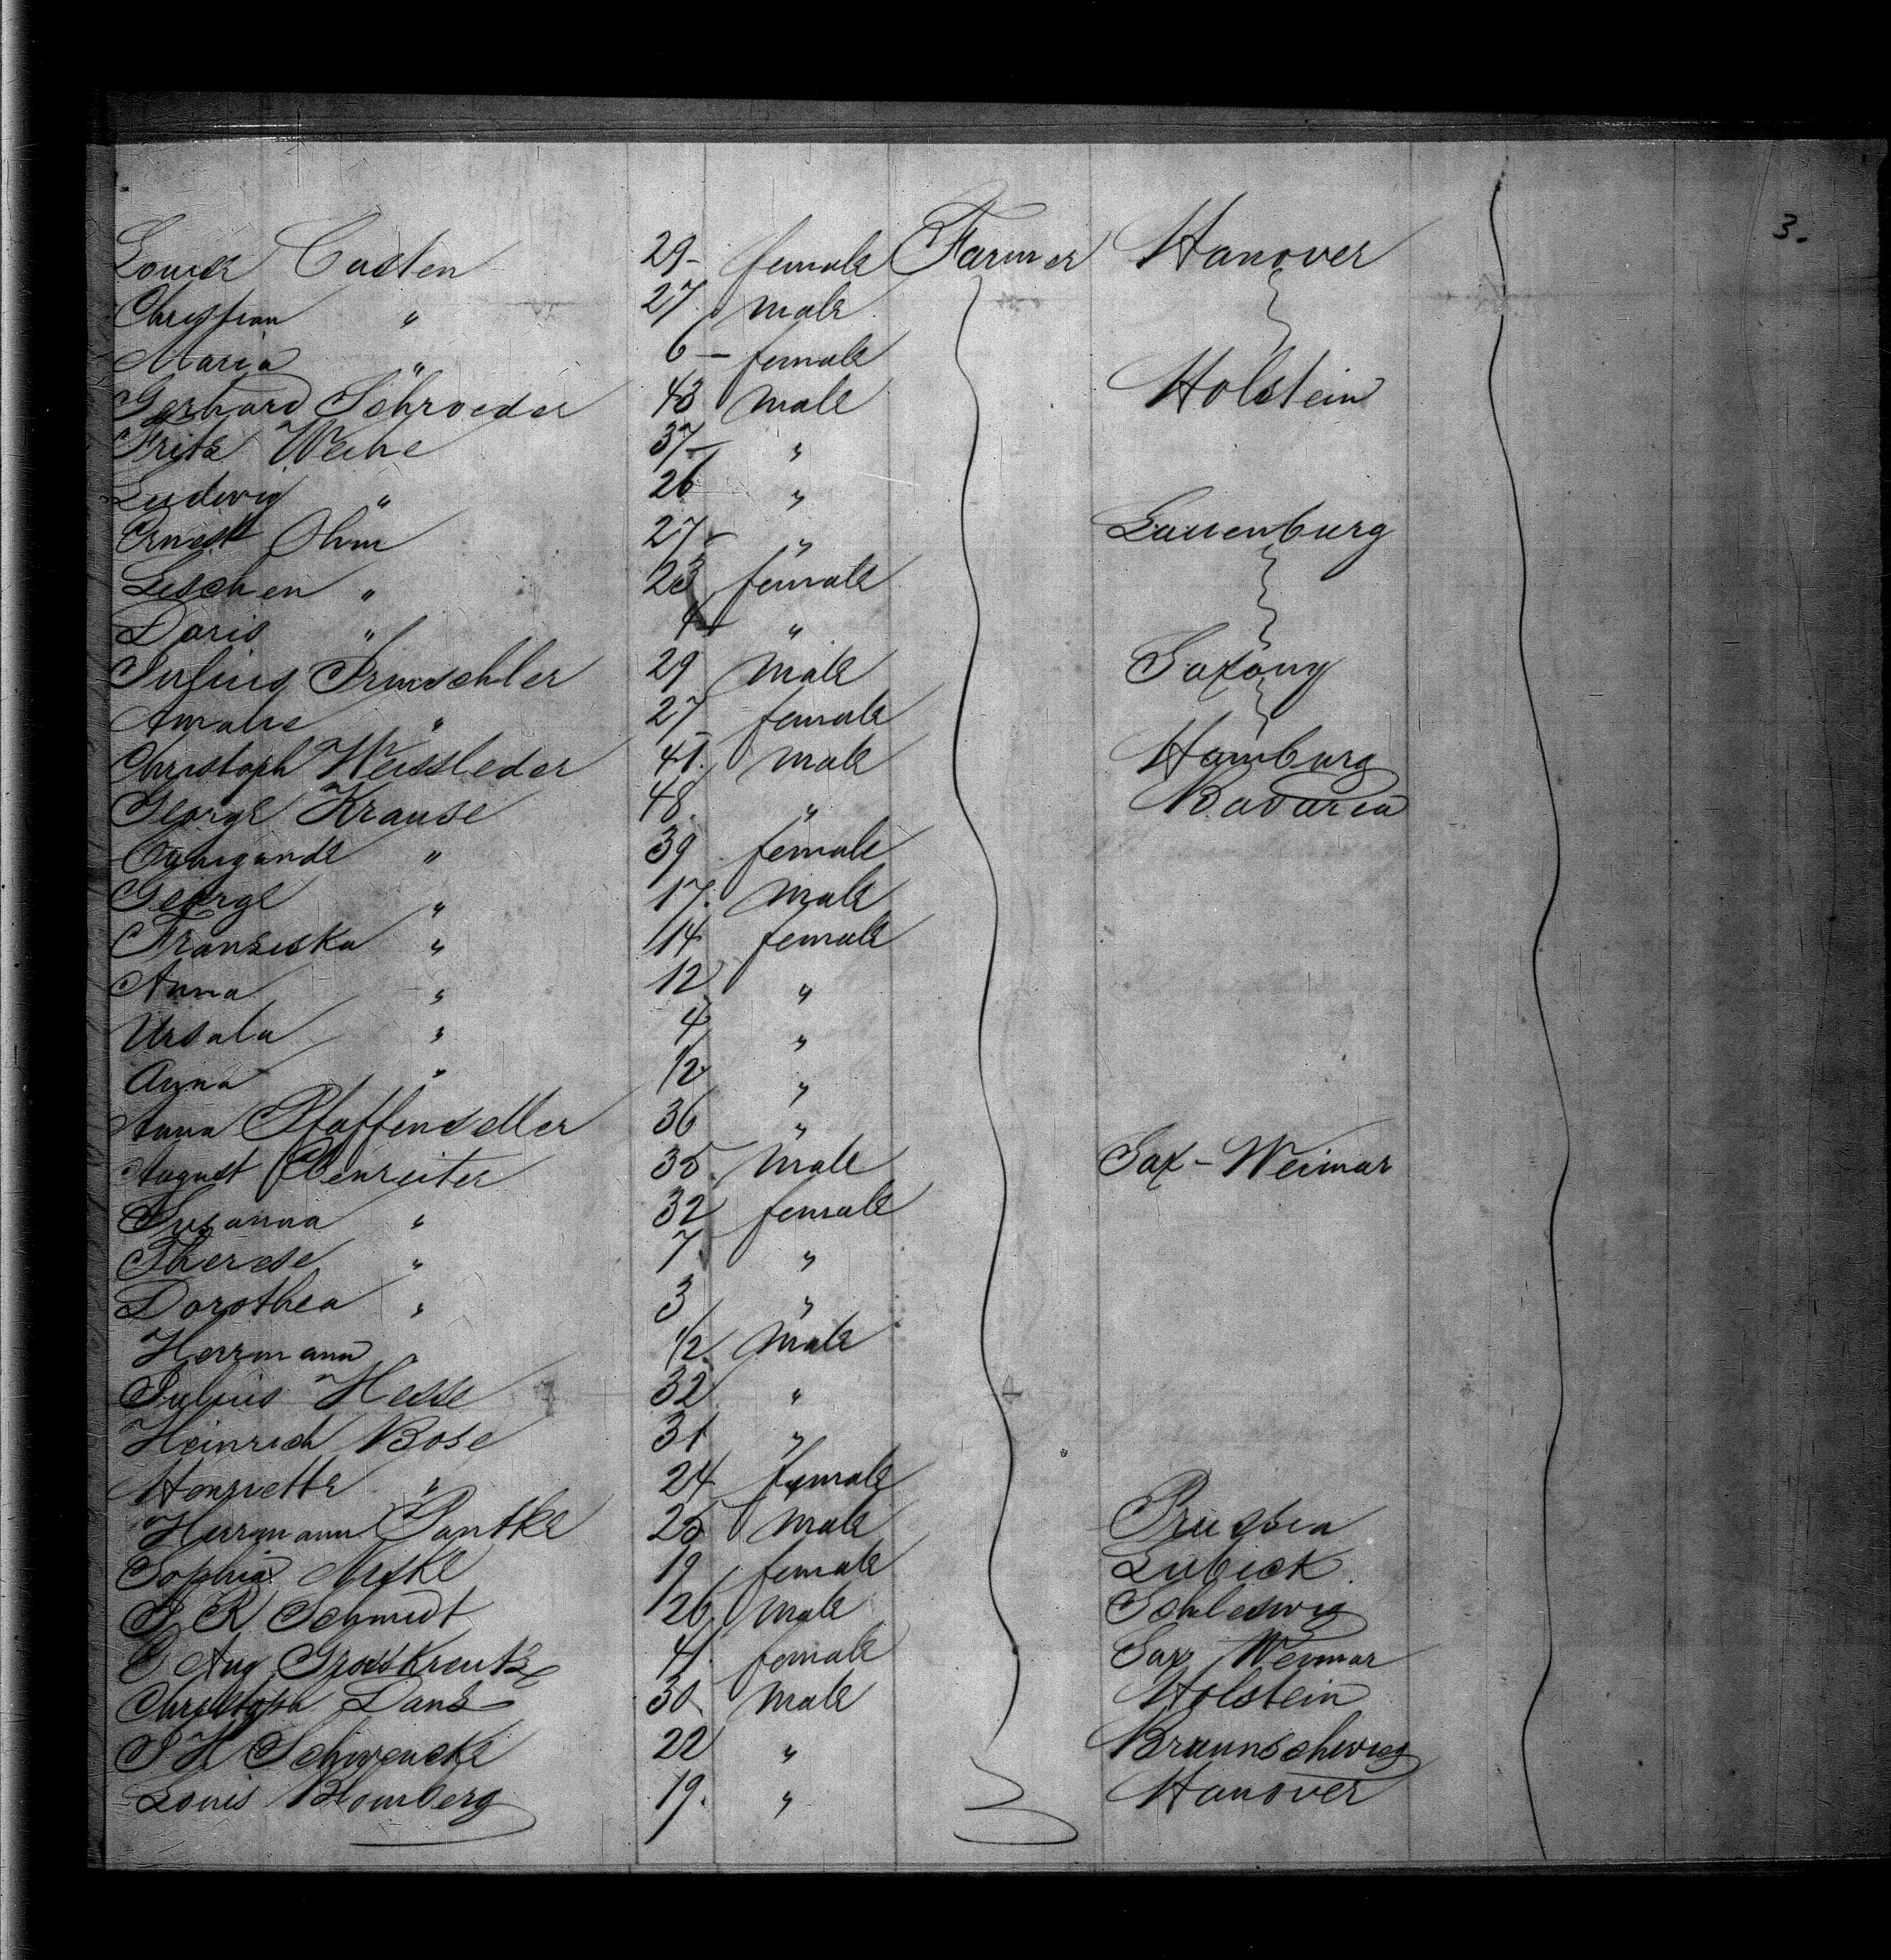 3.
Louise Casten 29 - female Farmer Hanover
Christian " 27 male
Maria " 6 - female
Gerhard Schroeder 43 male Holstein
Fritz Weihe 37 - "
Ludwig " 26 "
Ernest Ohm 27 - " Lauenburg
Lieschen " 23 female
Doris " 4 "
Julius 29 male Saxony
Amalie " 27 female
Christoph Weissleder 41. male Hamburg
George Krause 48. " Bavaria
" 39 female
George " 17. male
Franziska " 14 female
Anna " 12 "
Ursula " 4 "
Anna " 1/2 "
Anna Pfaffenseller 36 "
August Ebenreiter 35. male Sax-Weimar
Susanna " 32 female
Therese " 7. "
Dorothea " 3 "
Herrmann " 1/2. male
Julius Hesse 32 "
Heinrich Bose 31 "
Henriette " 24 female
Herrmann Pantke 25 male Prussia
Sophia 19 female Lubeck
J R Schmidt 26. male Schleswig
C Aug Grosskreutz 41. female Sax Weimar
Christoph Dans 30. male Holstein
J H Schwencke 22 " Braunschweig
Louis Blomberg 19. " Hanover